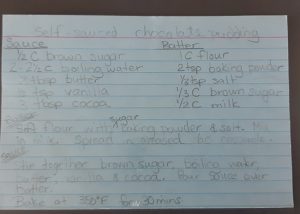 Self sauced chocolate pudding
Sauce Batter
1/2 C brown sugar 1 C flour
2 - 2 1/2 C boiling water 2 tsp baking powder
butter 1/2 tsp salt
vanilla 1/3 C brown sugar
3 tbsp cocoa 1/2 C milk
sugar
flour with baking powder & salt. Mix
in milk. Spread in greased
Stir together brown sugar, boiling water,
butter, vanilla & cocoa. Pour sauce over
batter.
Bake at 350°F for 30 mins